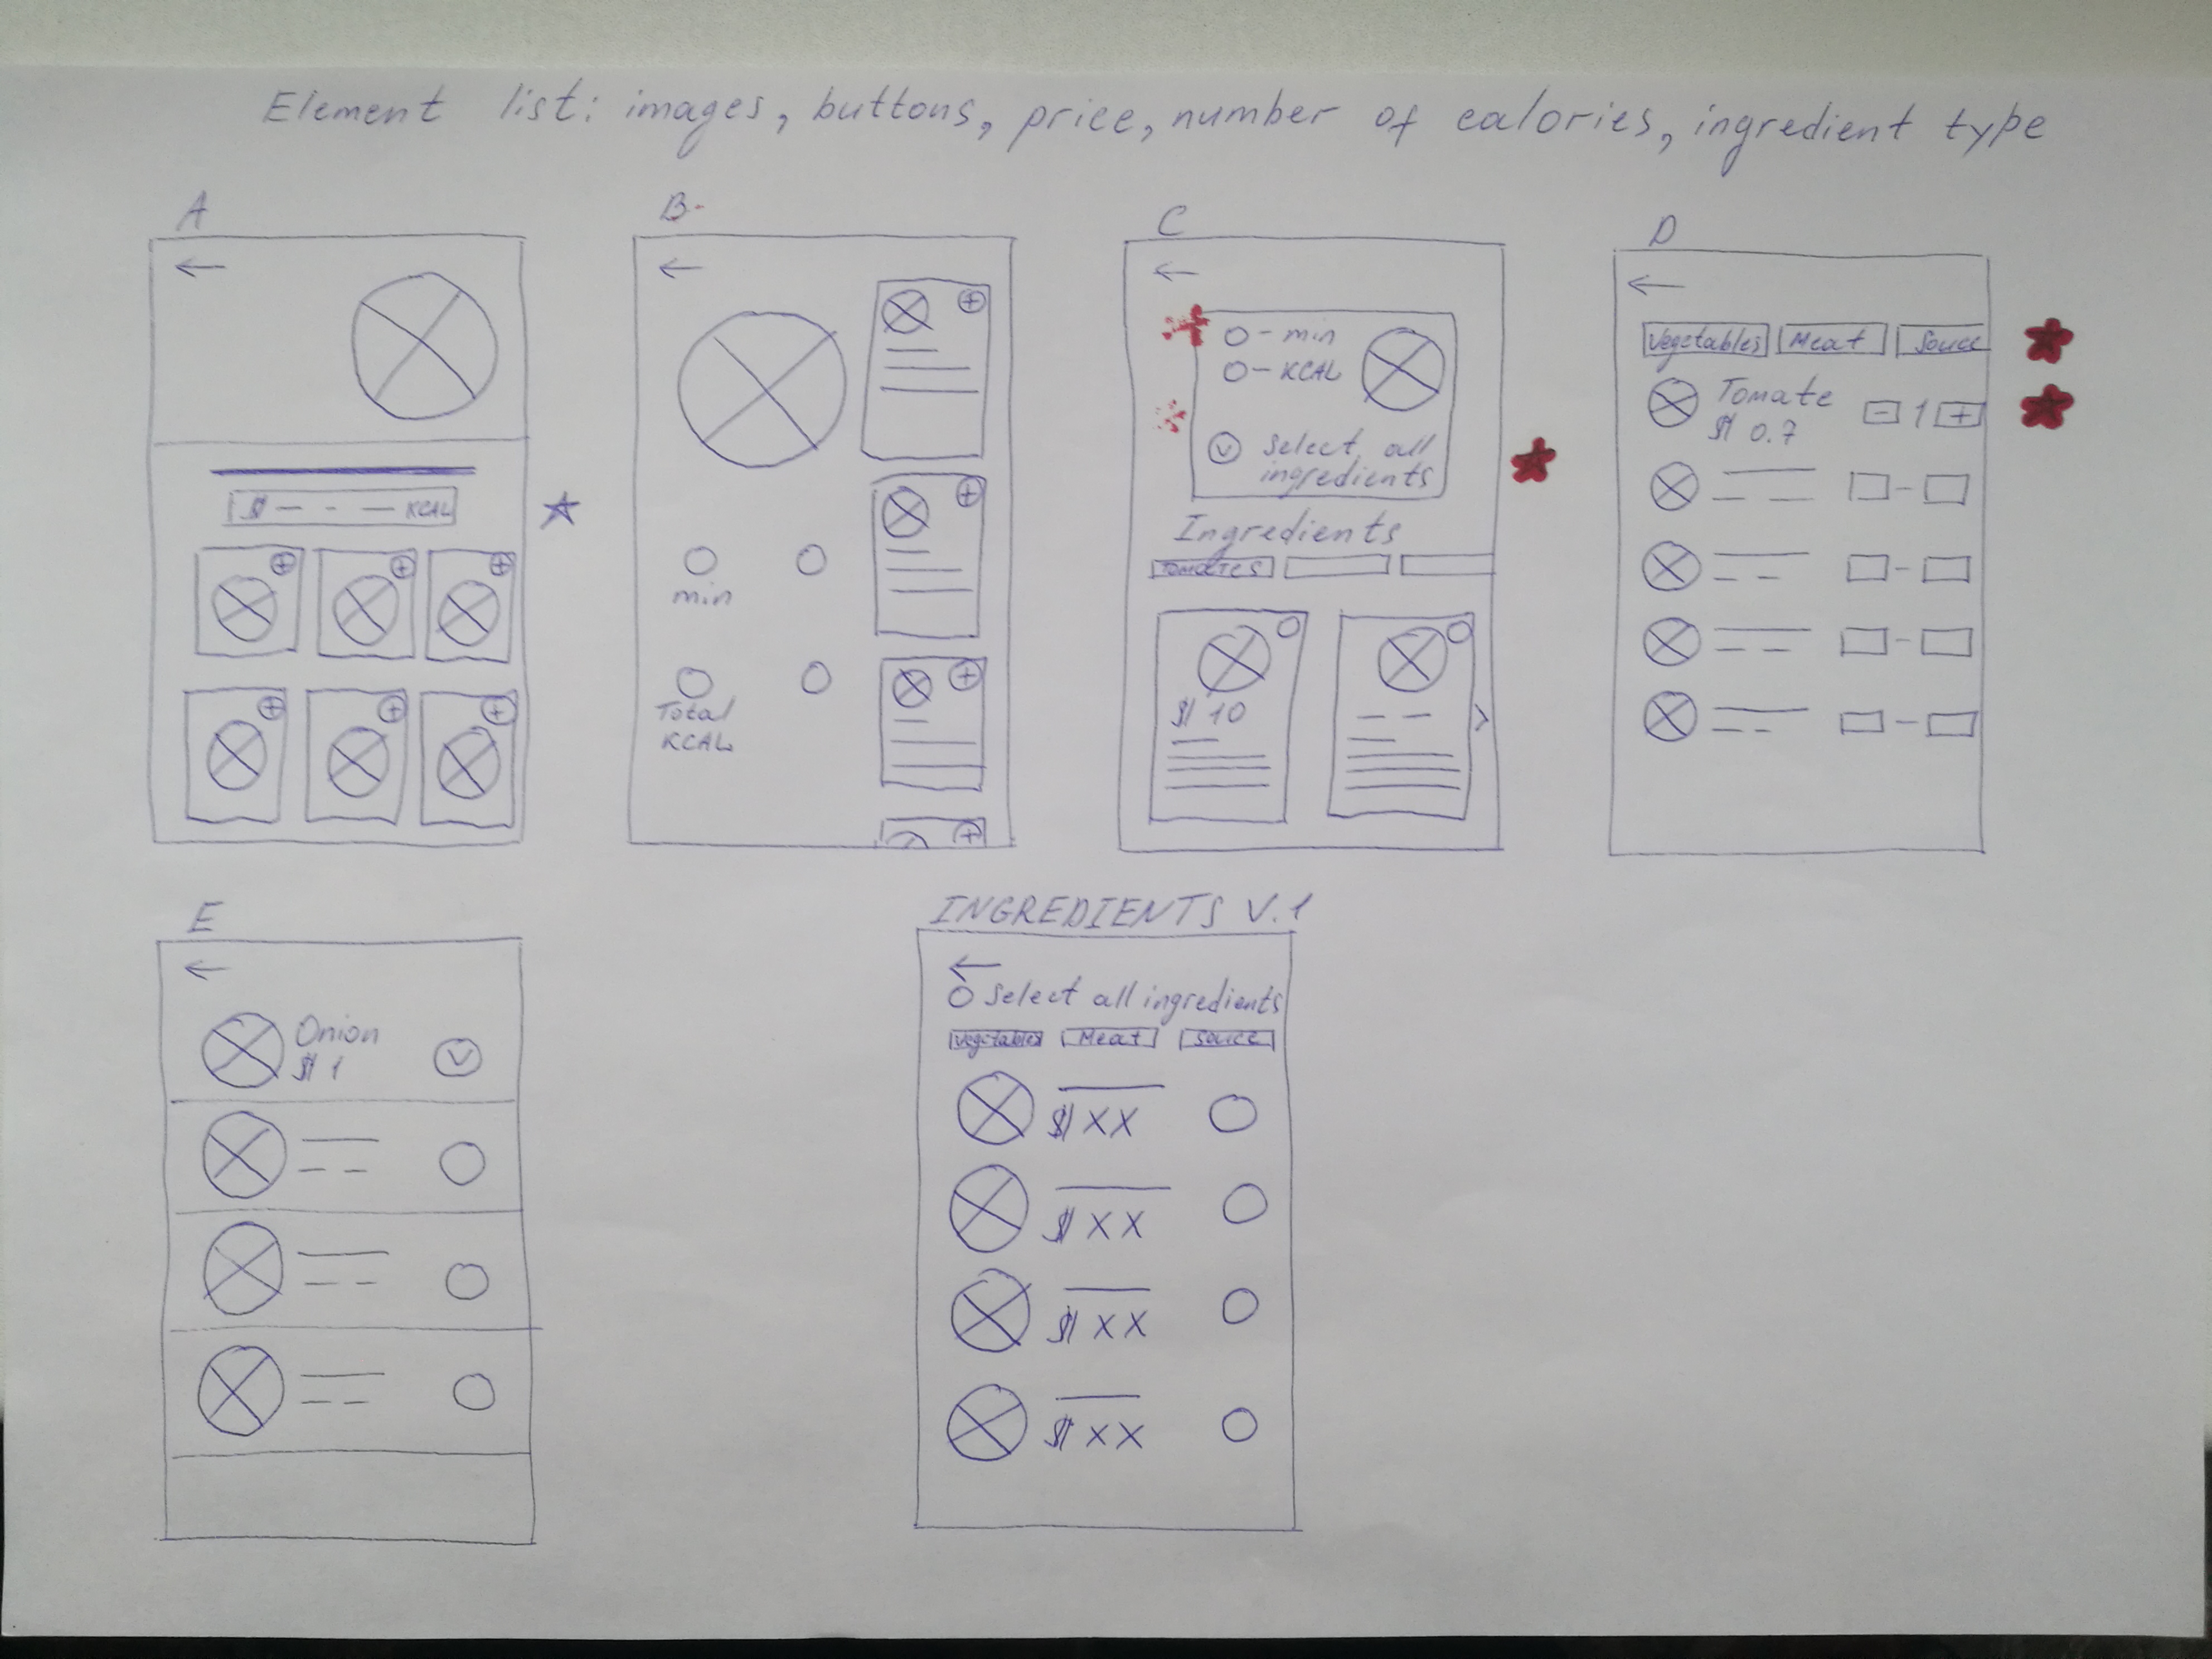 Element list: images, buttons, price, number of calories, ingredient type
A
$ KCAL
B
min
Total
KCAL
C
min
KCAL
Select all
ingredients
Ingredients
Tomatoes
$ 10
D
Vegetables Meat Souce
Tomate
$ 0.7
- 1 +
E
Onion
$ 1
INGREDIENTS V.1
Select all ingredients
Vegetables Meat Souce
$ XX
$ XX
$ XX
$ XX